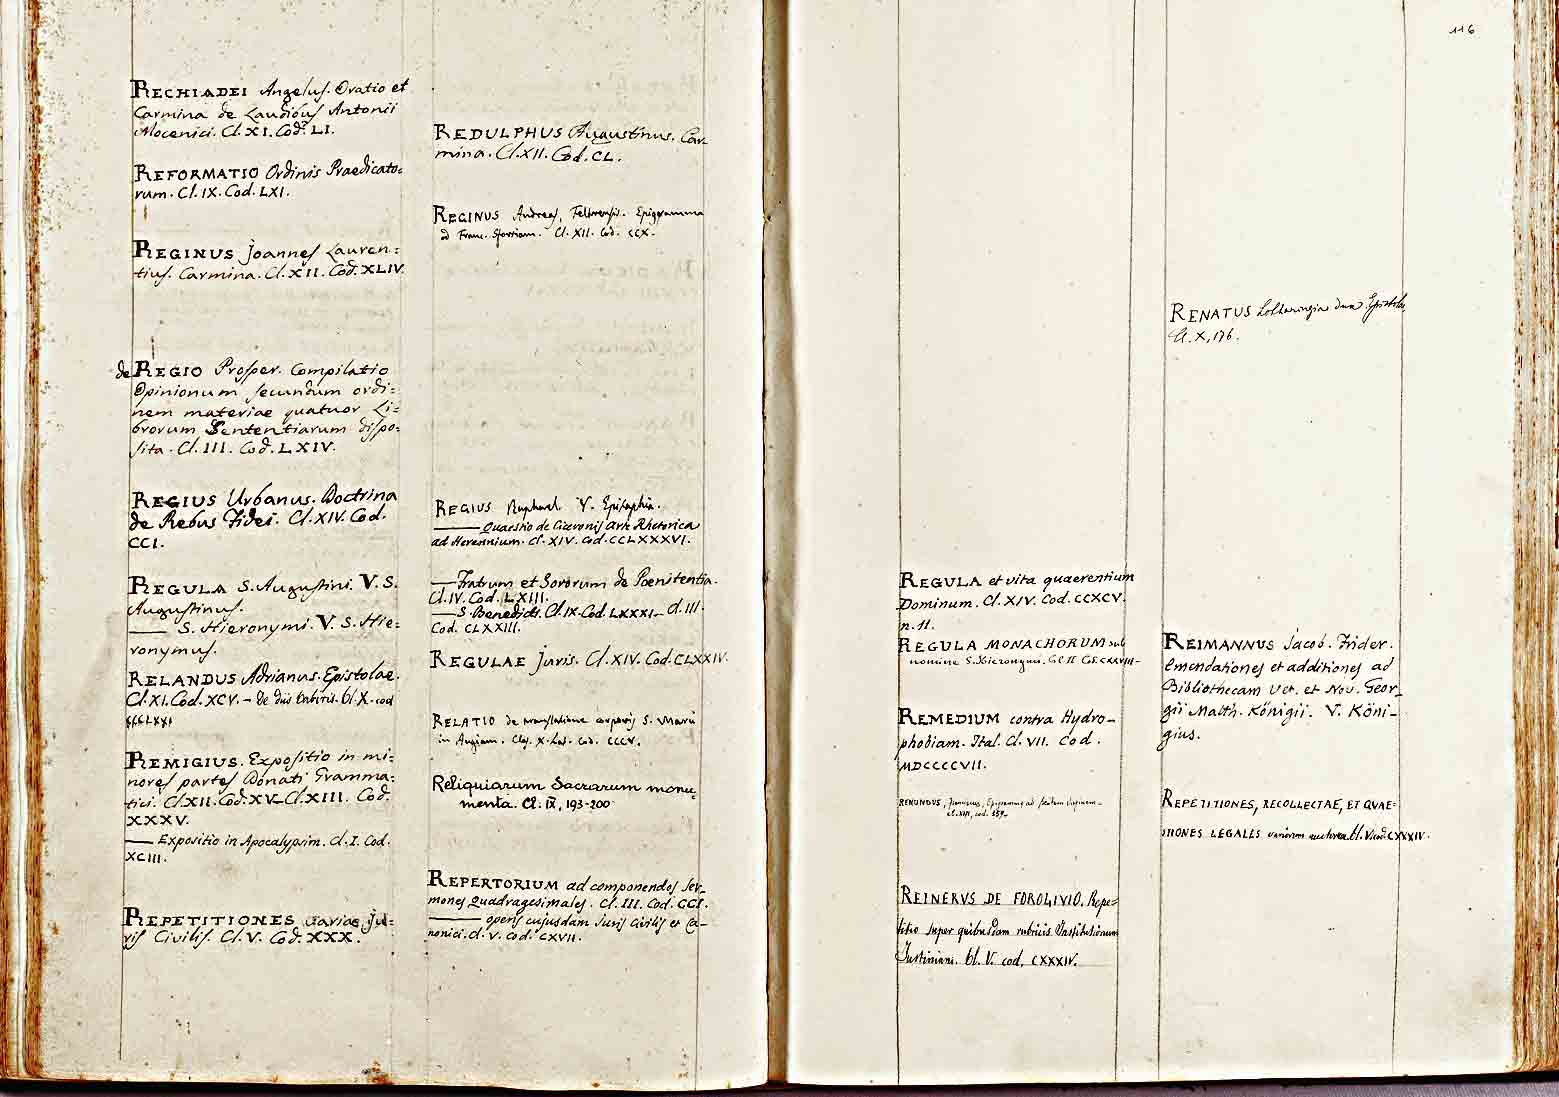 116
RECHIADEI Angelus. Oratio et
Carmina de Laudibus Antonii
Mocenici. Cl. XI. Cod. LI.
REFORMATIO Ordinis Praedicato=
rum. Cl. IX. Cod. LXI.
REGINUS Joannes Lauren=
tius. Carmina. Cl. XII. Cod. XLIV.
de REGIO Prosper. Compilatio
Opinionum secundum ordi=
nem materiae quatuor Li=
brorum Sententiarum dispo=
sita. Cl. III. Cod. LXIV.
REGIUS Urbanus. Doctrina
de Rebus Fidei. Cl. XIV. Cod.
CCI.
REGULA S. Augustini. V. S.
Augustinus.
—— S. Hieronymi. V. S. Hie=
ronymus.
RELANDUS Adrianus. Epistolae.
Cl. XI. Cod. XCV. – de diis Cabiris. Cl. X. cod
REMIGIUS. Expositio in mi=
nores partes Donati Gramma=
tici. Cl. XII. Cod. XV– Cl. XIII. Cod.
XXXV.
—— Expositio in Apocalypsim. Cl. I. Cod.
XCIII.
REPETITIONES variae Ju=
ris Civilis. Cl. V. Cod. XXX.
REDULPHUS Augustinus. Car-
mina. Cl. XII. Cod. CL.
REGINUS Andreas, Feltrensis. Epigramma
ad Franc. Sfortiam. Cl. XII. Cod. CCX.
REGIUS Raphael. V. Epitaphia.
—— Quaestio de Ciceronis Arte Rhetorica
ad Herennium. Cl. XIV. Cod. CCLXXXVI.
— Fratrum et Sororum de Poenitentia.
Cl. IV. Cod. LXIII.
— S. Benedicti. Cl. IX. Cod. LXXXI– Cl. III.
Cod. CLXXIII.
REGULAE Juris. Cl. XIV. Cod. CLXXIV.
RELATIO de translatione corporis S. Marci
in Augiam. Clas. X. Lat. Cod. CCCV.
Reliquiarum Sacrarum monu-
menta. Cl. IX, 193-200
REPERTORIUM ad componendos Ser-
mones Quadragesimales. Cl. III. Cod. CCI.
—— operis cujusdam Juris Civilis et Ca-
nonici. Cl. V. Cod. CXVII.
REGULA et vita quaerentium
Dominum. Cl. XIV. Cod. CCXCV.
n. 11.
REGULA MONACHORUM sub
nomine S. Hieronymi. Cl. II Cod. CXXVIII-
REMEDIUM contra Hydro-
phobiam. Ital. Cl. VII. Cod.
MDCCCCVII.
REMUNDUS, Franciscus, Epigramma ad
Cl. XIII, cod.
REINERVS DE FOROLIVIO. Repe=
titio super quibusdam rubricis Institutionum
Justiniani. Cl. V. cod. CXXXIV.
RENATUS Lotharingiae dux Epistola,
Cl. X, 176.
REIMANNUS Jacob. Frider.
Emendationes et additiones ad
Bibliothecam Vet. et Nov. Geor-
gii Matth. Königii. V. Köni-
gius.
REPETITIONES, RECOLLECTAE, ET QVAE=
STIONES LEGALES variorum auctorum Cl. V. cod. CXXXIV.